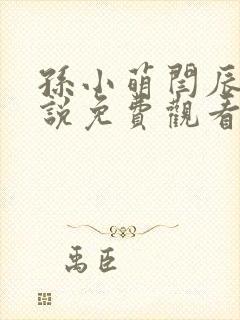 孫小萌閆辰
說免費觀看
禹臣